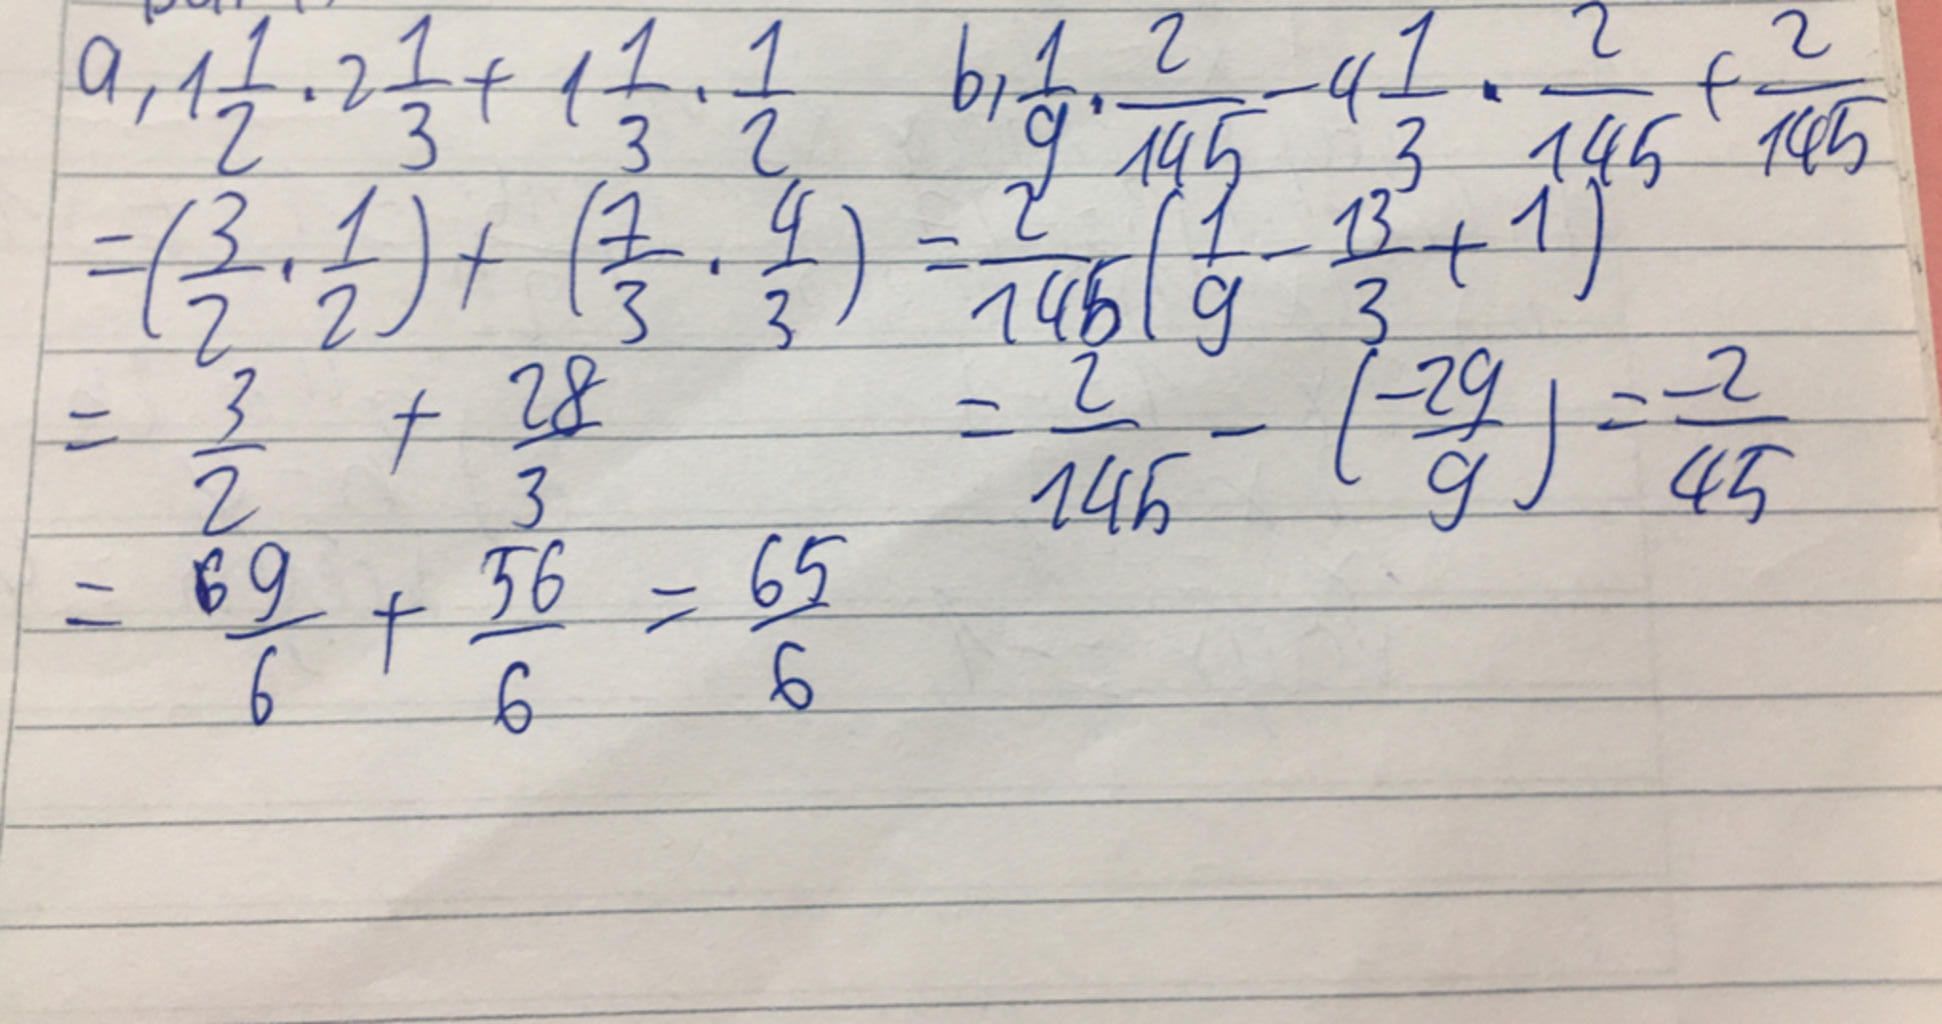 a, 1 1/2 . 2 1/3 + 1 1/3 . 1/2
= (3/2 . 1/2) + (7/3 . 4/3)
= 3/2 + 28/3
= 69/6 + 56/6 = 65/6
b, 1/9 . 2/145 - 4 1/3 . 2/145 + 2/145
= 2/145 (1/9 - 13/3 + 1)
= 2/145 - (-29/9) = -2/45